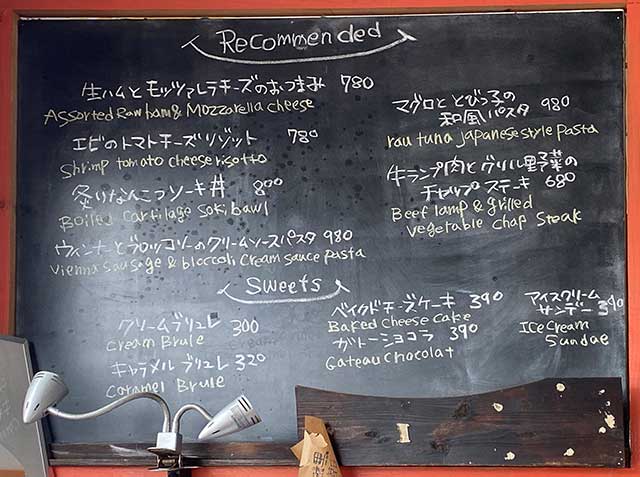 Recommended
生ハムとモッツァレラチーズのおつまみ 780
Assorted Raw ham & Mozzarella cheese
エビのトマトチーズリゾット 780
Shrimp tomato cheese risotto
なんこつソーキ丼 800
Boiled cartilage soki bawl
ウィンナーとブロッコリーのクリームソースパスタ 980
Vienna sausage & bloccoli cream sauce pasta
マグロととびっ子の
和風パスタ 980
rau tuna japanese style pasta
牛ランプ肉とグリル野菜の
チャップステーキ 680
Beef lamp & grilled
vegetable chap steak
Sweets
クリームブリュレ 300
Cream Brule
キャラメルブリュレ 320
Caramel Brule
ベイクドチーズケーキ 390
Baked cheese cake
ガトーショコラ 390
Gateau chocolat
アイスクリーム
サンデー 390
Ice Cream
Sundae